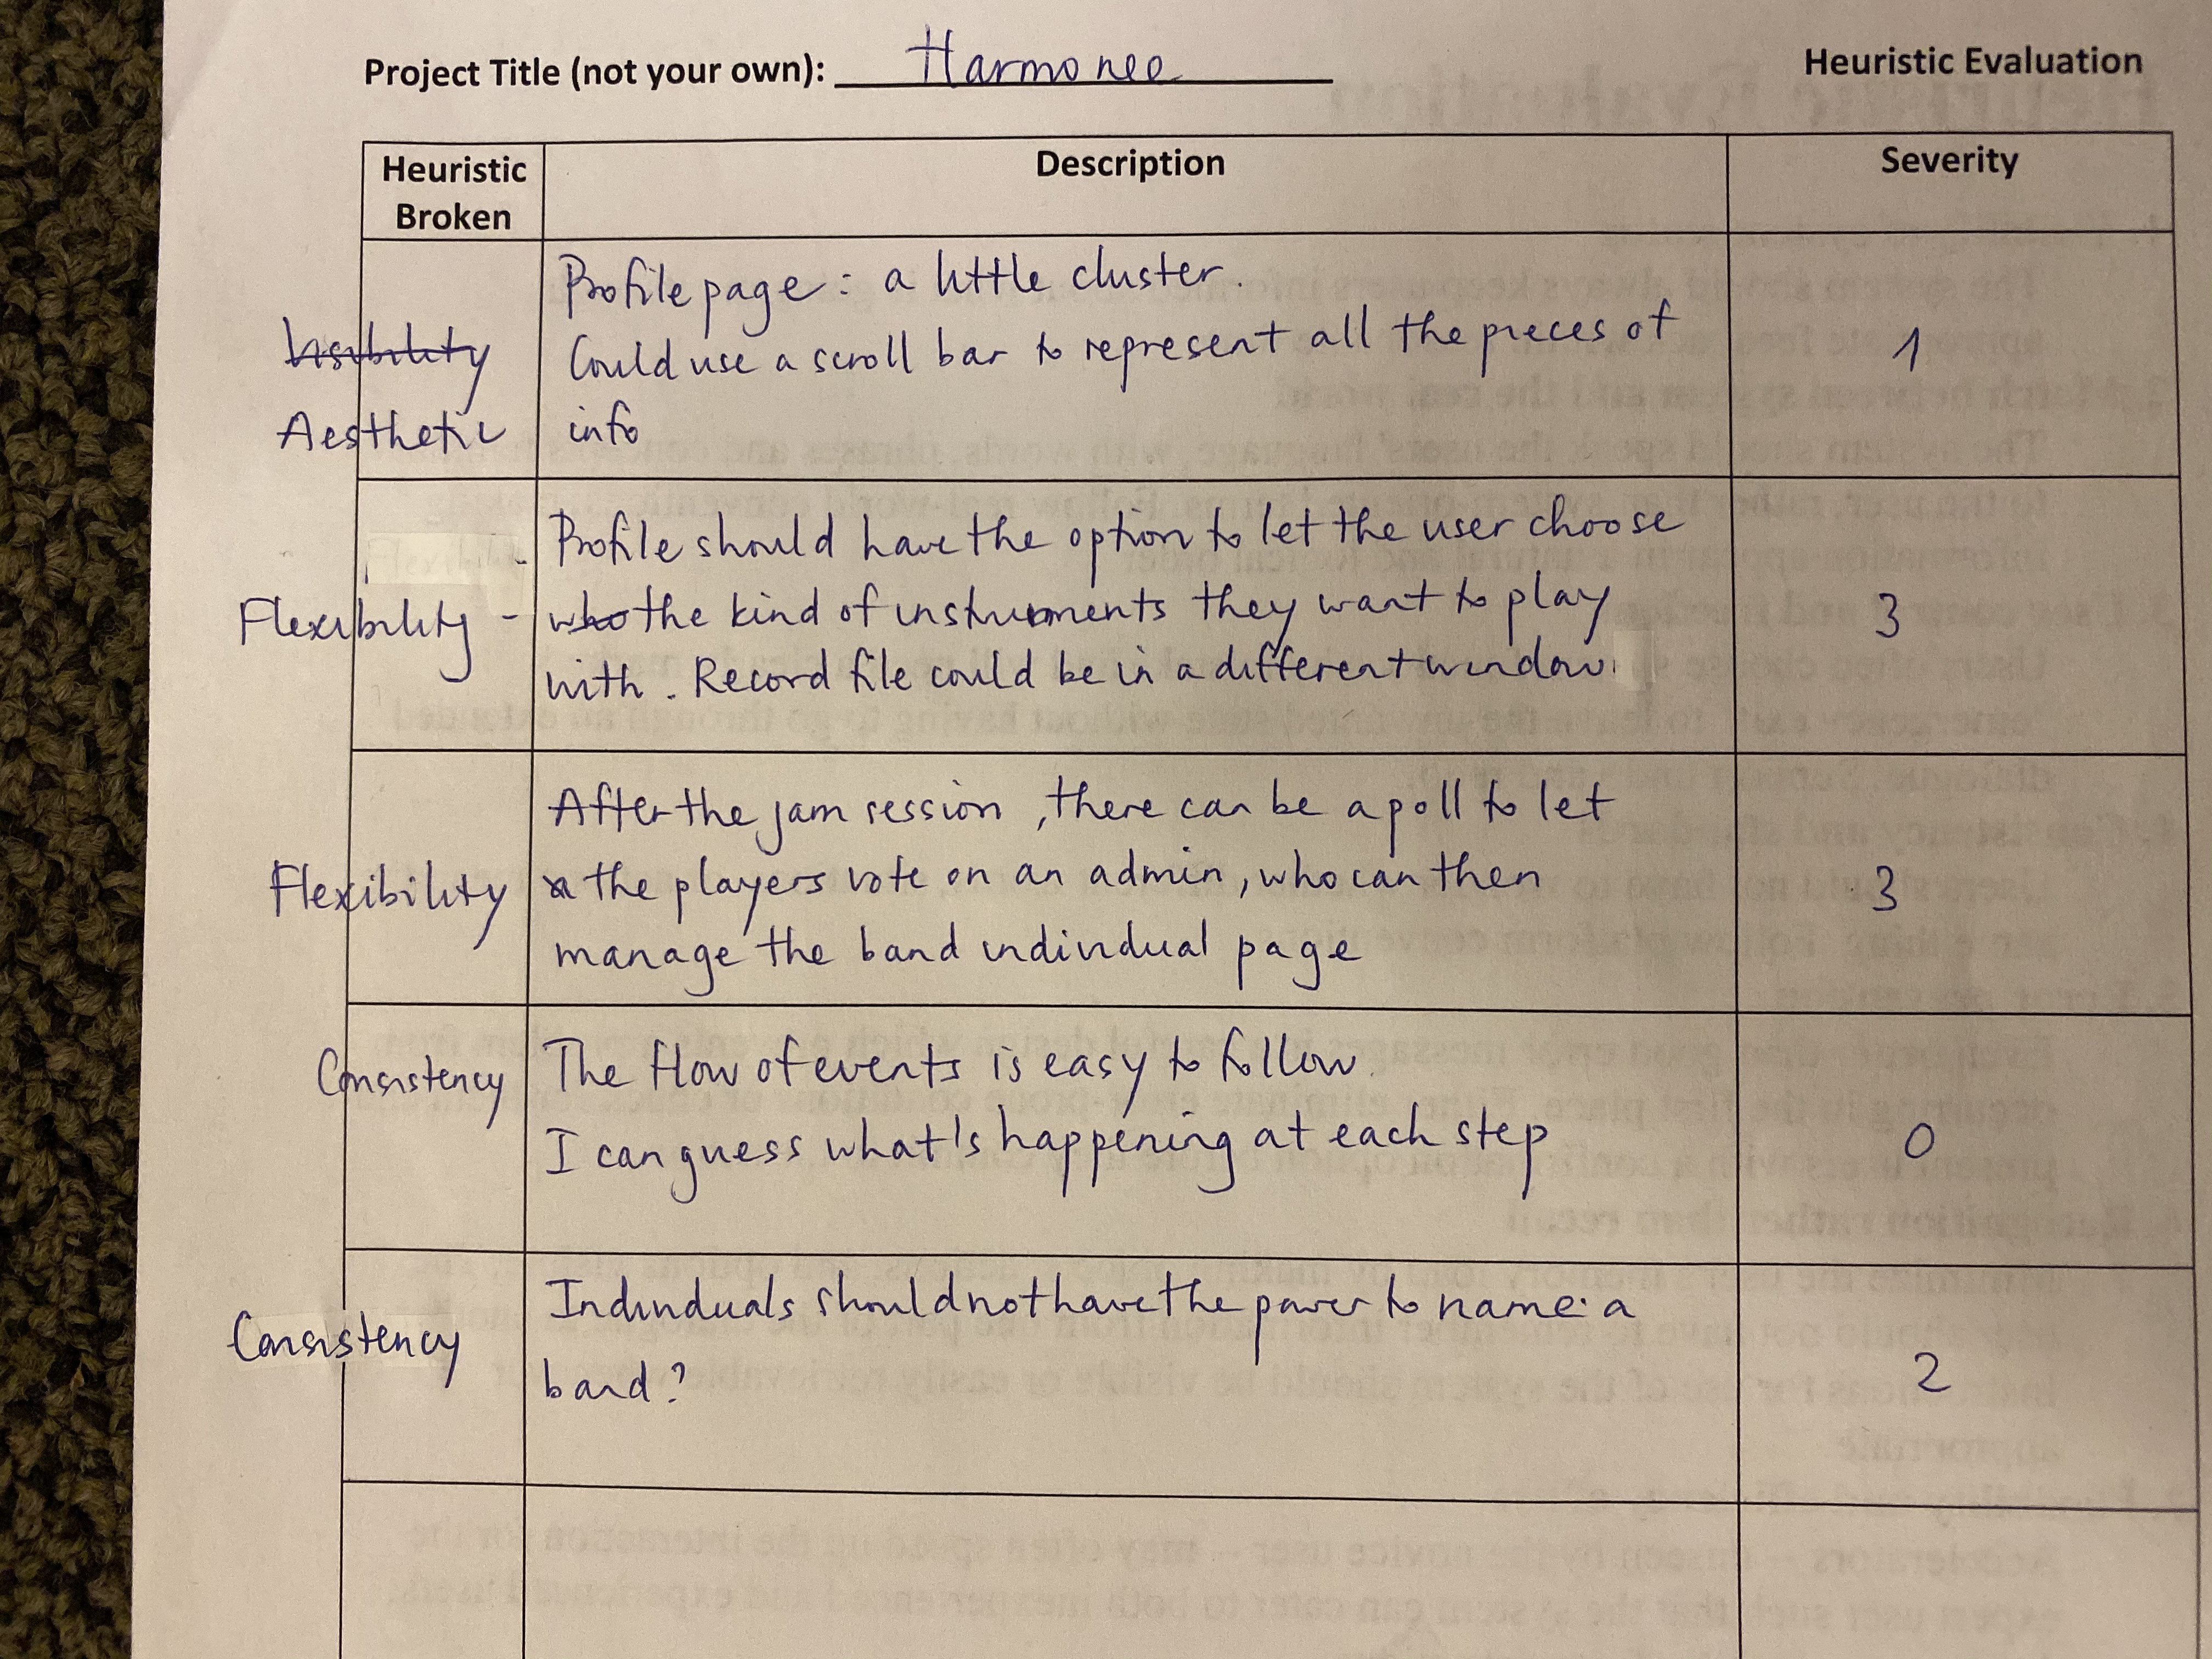 Heuristic Evaluation
Project Title (not your own): Harmonee
Heuristic Broken
Description
Severity
Visibility
Aesthetic
Profile page: a little cluster.
Could use a scroll bar to represent all the pieces of
info
1
Flexibility -
Profile should have the option to let the user choose
who the kind of instruments they want to play
with. Record file could be in a different window.
3
Flexibility
After the jam session, there can be a poll to let
the players vote on an admin, who can then
manage the band individual page
3
Consistency
The flow of events is easy to follow.
I can guess what's happening at each step
0
Consistency
Individuals should not have the power to name a
band?
2